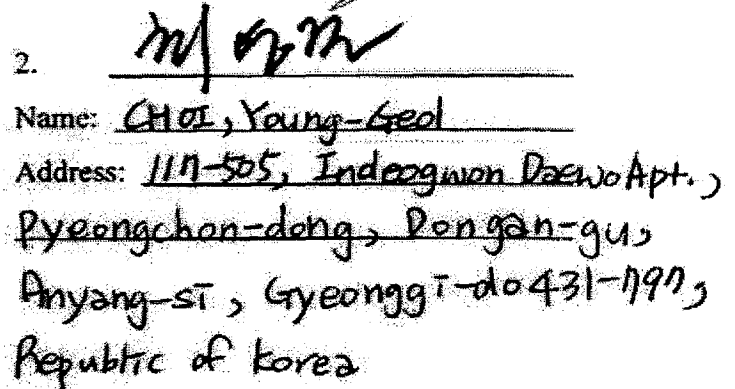 2.
Name: CHOI, Young-Geol
Address: 117-505, Indeogwon Daewo Apt.,
Pyeongchon-dong, Dongan-gu,
Anyang-si, Gyeonggi-do 431-797,
Republic of Korea